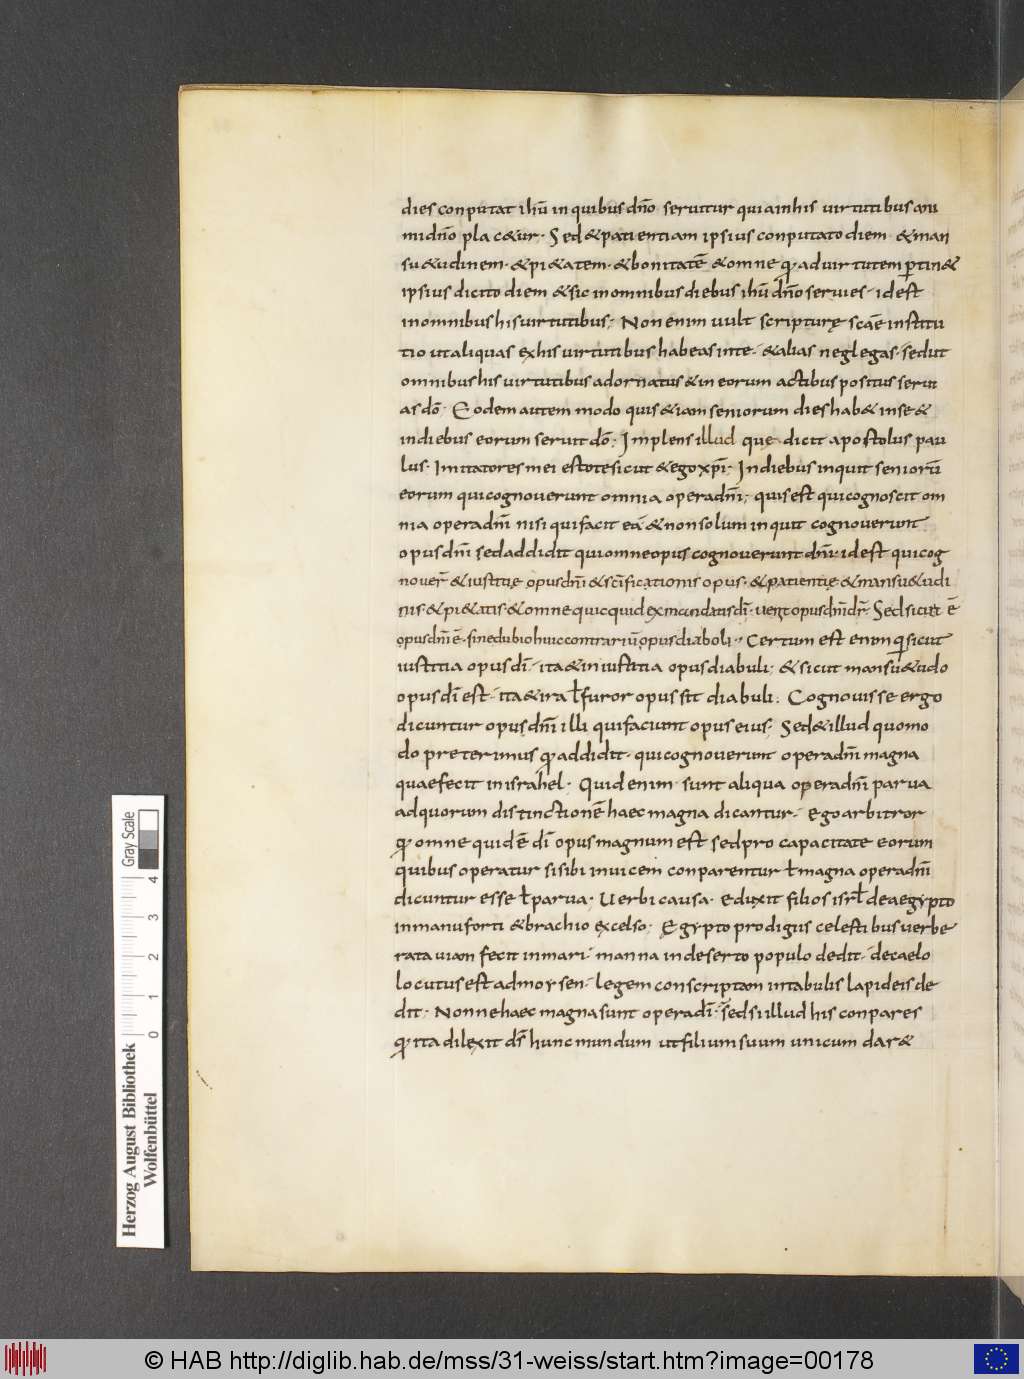 dies conputat ihū in quibus dño seruitur quia in his uirtutibus ani
mi dño plac&ur · Sed & patientiam ipsius conputato diem · & man
su&udinem · & pi&atem · & bonitatē & omne qđ ad uirtutem ꝑtin&
ipsius dicito diem & sic in omnibus diebus ihū dño seruies · id est
in omnibus his uirtutibus ; Non enim uult scripturę scāe institu
tio ut aliquas ex his uirtutibus habeas in te · & alias neglegas · sed ut
omnibus his uirtutibus adornatus & in eorum actibus positus serui
as dō · Eodem autem modo quis & iam seniorum dies hab& in se &
in diebus eorum seruit dō ; Implens illud que dicit apostolus pau
lus · Imitatores mei estote sicut & ego xp̄i · In diebus inquit seniorū
eorum qui cognouerunt omnia opera dn̄i ; quis est qui cognoscit om
nia opera dn̄i nisi qui facit ea & non solum inquit cognouerunt
opus dn̄i sed addidit qui omne opus cognouerunt dn̄i · id est qui cog
nouer̄ & iustitię opus dn̄i & sc̄ificationis opus · & patientię & mansu&udi
nis · & pi&atis · & omne quicquid ex mandatis dī ·
Sed sicut ē
opus dn̄i ē · sine dubio huic contrariū opus diaboli · Certum est enim qđ sicut
iustitia opus dī · ita & iniustitia opus diabuli ; & sicut mansu&udo
opus dī est · ita & ira ł furor opus sit diabuli . Cognouisse ergo
dicuntur opus dn̄i illi qui faciunt opus eius · Sed & illud quomo
do preterimus qđ addidit · qui cognouerunt opera dn̄i magna
quae fecit in israhel · Quid enim sunt aliqua opera dn̄i parua
ad quorum distinctionē haec magna dicantur · Ego arbitror
qđ omne quid ē dī opus magnum est sed pro capacitate eorum
quibus operatur si sibi inuicem conparentur ł magna opera dn̄i
dicuntur esse ł parua · Uerbi causa · eduxit filios isrł de aegypto
in manu forti & brachio excelso · Egypto prodigiis celestibus uerbe
rata uiam fecit in mari · manna in deserto populo dedit · de caelo
locutus est ad moysen · legem conscriptam in tabulis lapideis de
dit · Nonne haec magna sunt opera dī · sed si illud his conpares
qđ ita dilexit ds̄ hunc mundum ut filium suum unicum dar&
Herzog August Bibliothek
Wolfenbüttel
0 1 2 3 4
Gray Scale
© HAB http://diglib.hab.de/mss/31-weiss/start.htm?image=00178